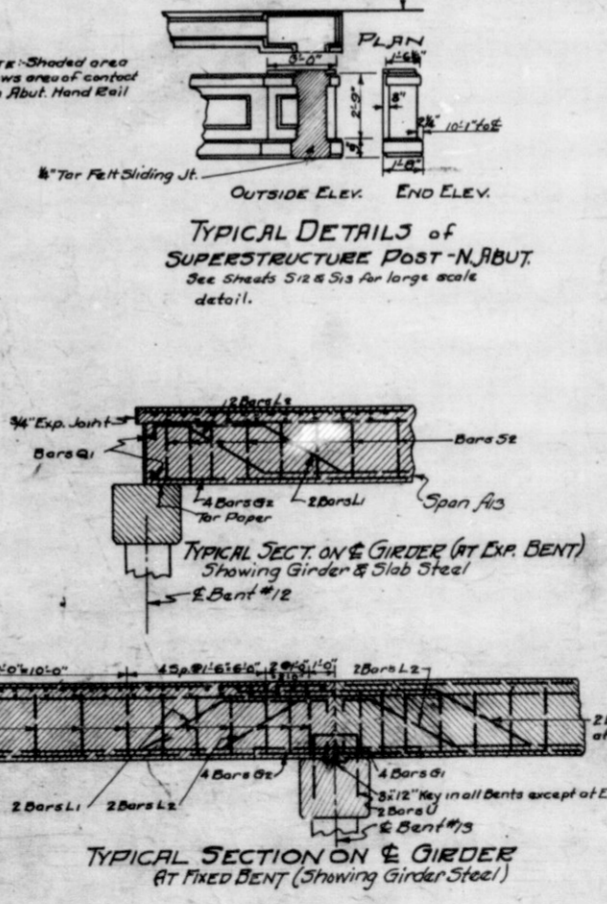 PLAN
Shaded area
area of contact
Abut. Hand Rail
3'-0"
1'-6½"
2'-9"
8"
2½"
10'-1" to ℄
1'-8"
¼" Tar Felt Sliding Jt.
OUTSIDE ELEV. END ELEV.
TYPICAL DETAILS of
SUPERSTRUCTURE POST - N. ABUT.
See Sheets S12 & S13 for large scale
detail.
2 Bars L2
3/4" Exp. Joint
Bars Q1
Bars S2
4 Bars G2
2 Bars L1
Span A13
Tar Paper
TYPICAL SECT. ON ℄ GIRDER (AT EXP. BENT)
Showing Girder & Slab Steel
℄ Bent #12
4 Sp. @ 1'-6" = 6'-0"
2 @ 1'-0"
1'-0"
2 Bars L2
4 Bars G2
4 Bars G1
2 Bars L1
2 Bars L2
3x12" Key in all Bents except at
2 Bars U
℄ Bent #13
TYPICAL SECTION ON ℄ GIRDER
AT FIXED BENT (Showing Girder Steel)